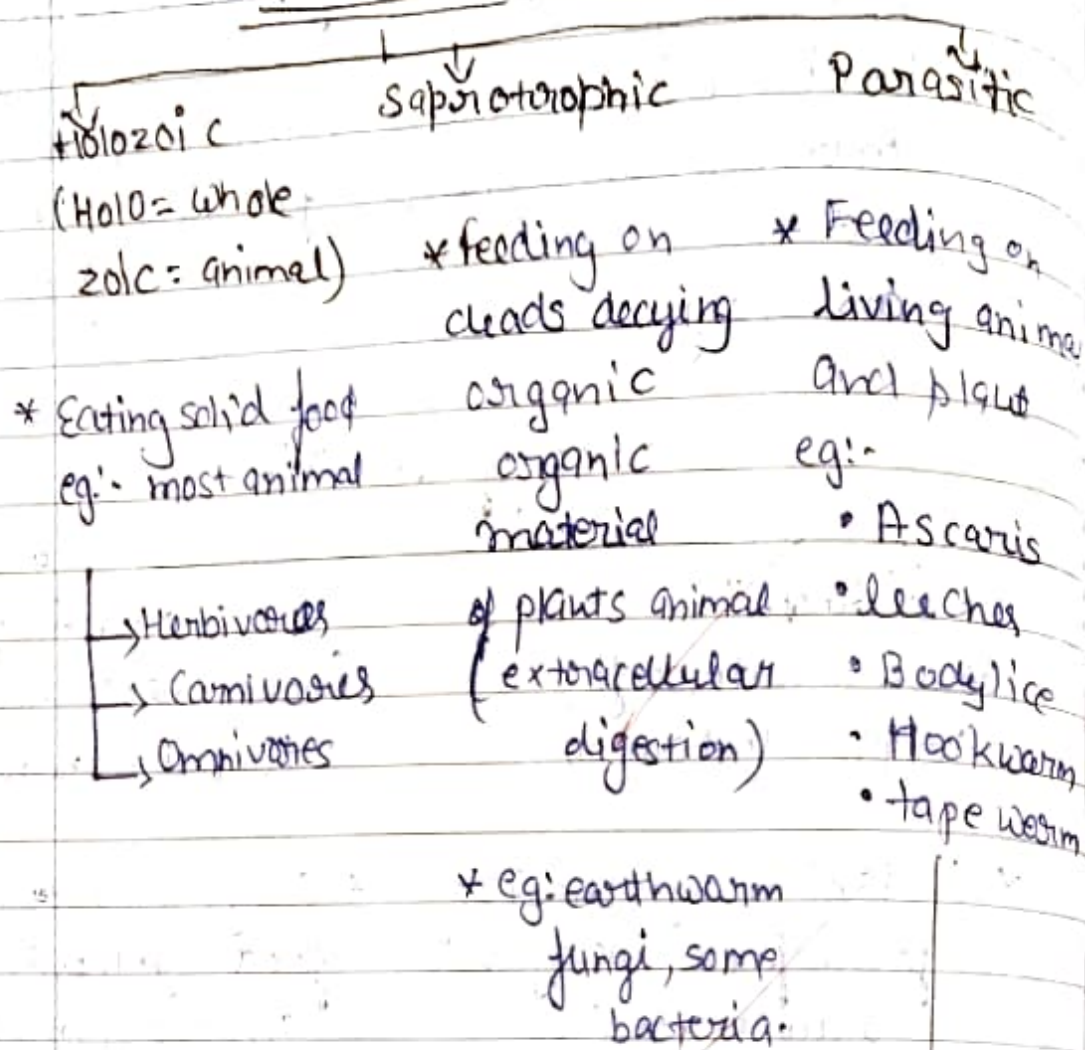 Holozoic
(Holo = whole
zoic = animal)
* Eating solid food
eg:- most animal
→ Herbivores
→ Carnivores
→ Omnivores
Saprotrophic
* feeding on
deads decying
organic
organic
material
of plants animal
(extracellular
digestion)
* eg: earthwarm
fungi, some
bacteria.
Parasitic
* Feeding on
living anima
and plant
eg:-
• Ascaris
• leeches
• Bodylice
• Hookwarm
• tape worm